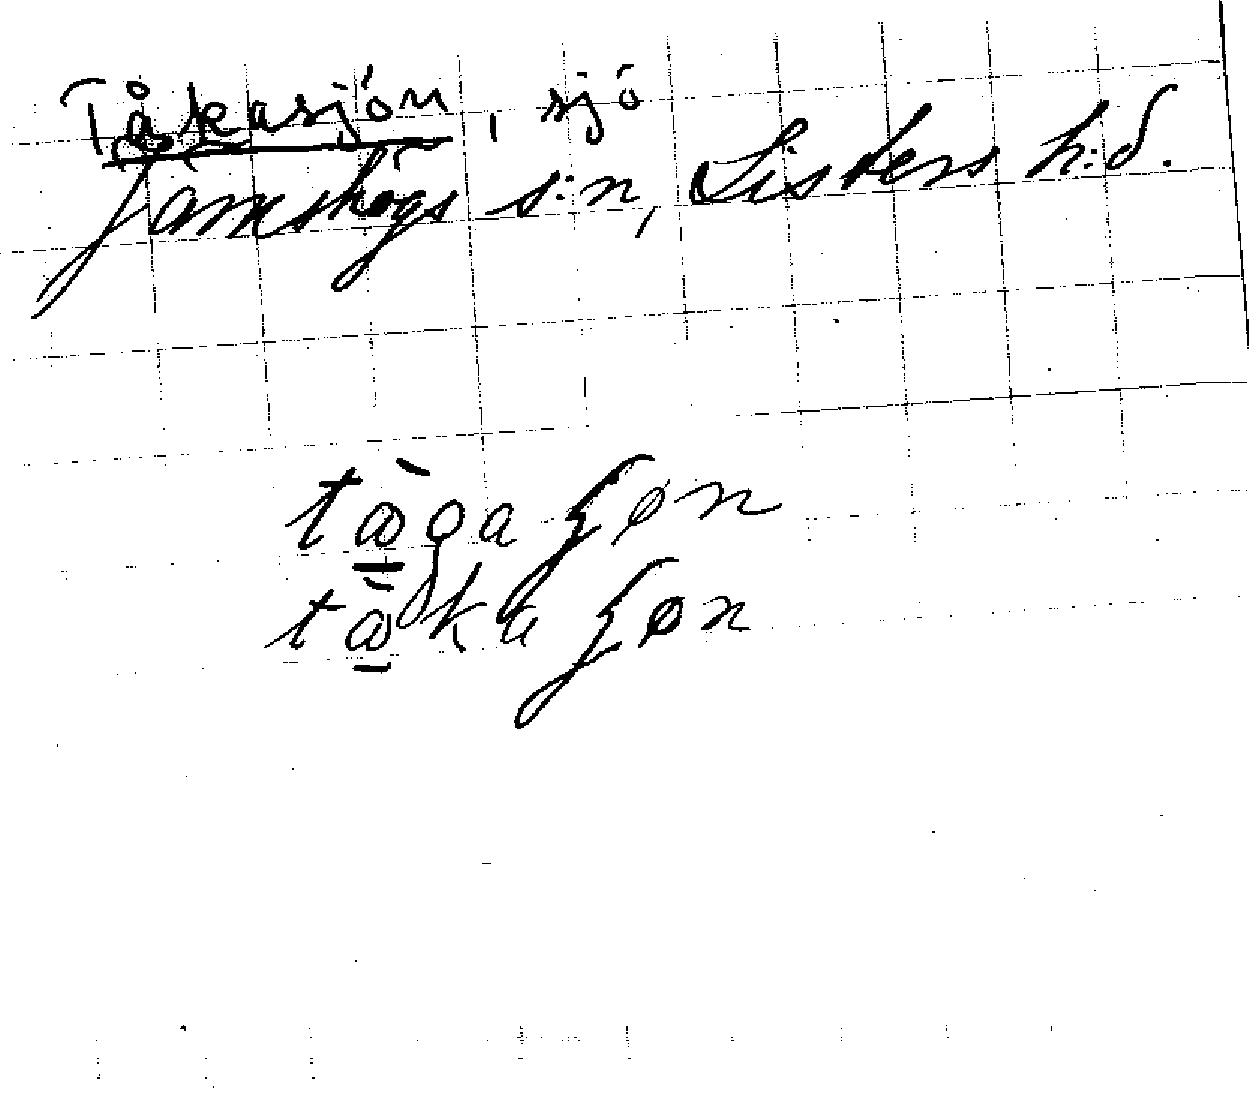 Tåkasjön, sjö
Jämshögs s:n, Listers h:d.
tàgaʃøn
tàkaʃøn